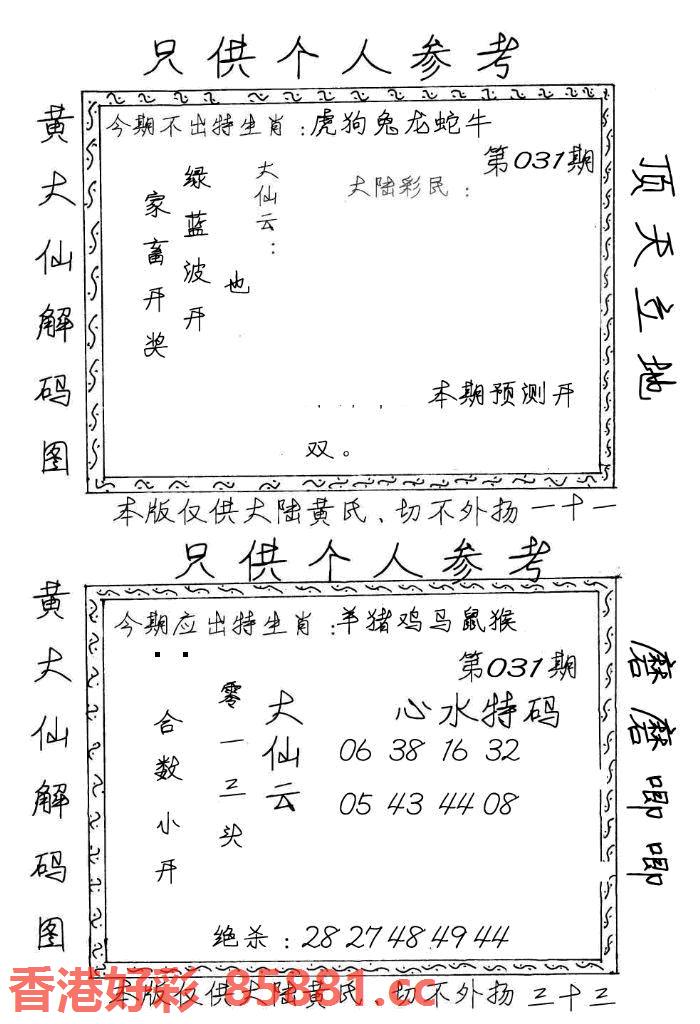 只供个人参考
黄大仙解码图
今期不出特生肖：虎狗兔龙蛇牛
第031期
大仙云：
绿蓝波开也
家畜开奖
大陆彩民：
本期预测开
双。
顶天立地
本版仅供大陆黄氏、切不外扬一十一
只供个人参考
黄大仙解码图
今期应出特生肖：羊猪鸡马鼠猴
第031期
大仙云
零一三头
合数小开
心水特码
06 38 16 32
05 43 44 08
绝杀：28 27 48 49 44
磨磨唧唧
本版仅供大陆黄氏、切不外扬三十三
香港好彩 85881.cc